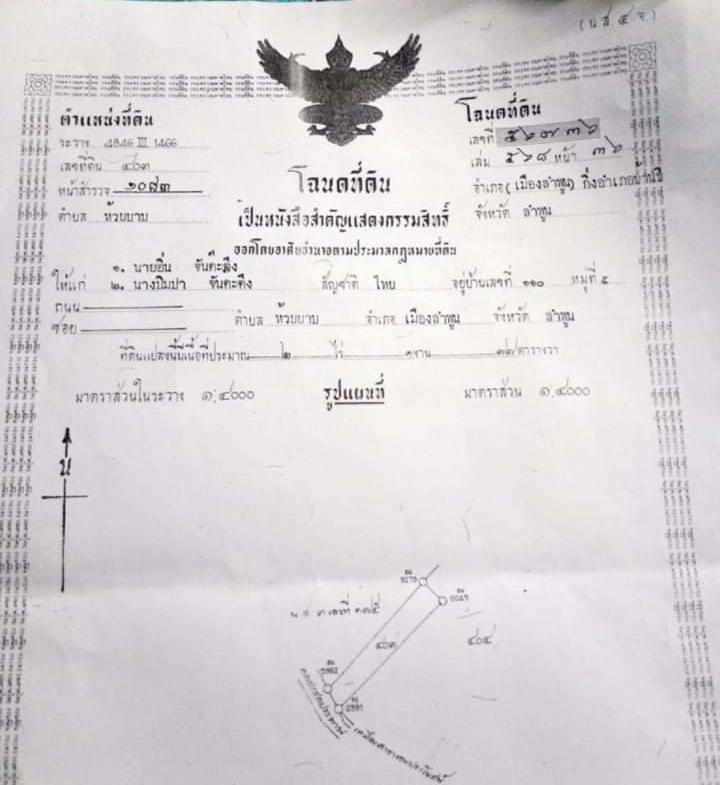 (น.ส. ๔ จ.)
ตำแหน่งที่ดิน
ระวาง 4846 III 1466
เลขที่ดิน ๔๐๓
หน้าสำรวจ ๑๐๘๓
ตำบล ห้วยยาบ
โฉนดที่ดิน
เลขที่ ๕๖๗๓๖
เล่ม ๕๖๘ หน้า ๓๖
อำเภอ (เมืองลำพูน) กิ่งอำเภอบ้านธิ
จังหวัด ลำพูน
โฉนดที่ดิน
เป็นหนังสือสำคัญแสดงกรรมสิทธิ์
ออกโดยอาศัยอำนาจตามประมวลกฎหมายที่ดิน
๑. นายอิ่น จันต๊ะดึง
ให้แก่ ๒. นางปิมปา จันตะดึง สัญชาติ ไทย อยู่บ้านเลขที่ ๑๑๐ หมู่ที่ ๕
ถนน
ซอย ตำบล ห้วยยาบ อำเภอ เมืองลำพูน จังหวัด ลำพูน
ที่ดินแปลงนี้มีเนื้อที่ประมาณ ๒ ไร่ ๑ งาน ๓๗ ตารางวา
มาตราส่วนในระวาง ๑:๔๐๐๐ รูปแผนที่ มาตราส่วน ๑:๔๐๐๐
น
น.ส. ๓ เลขที่ ๓๗๕
๔๐๓
๔๐๔